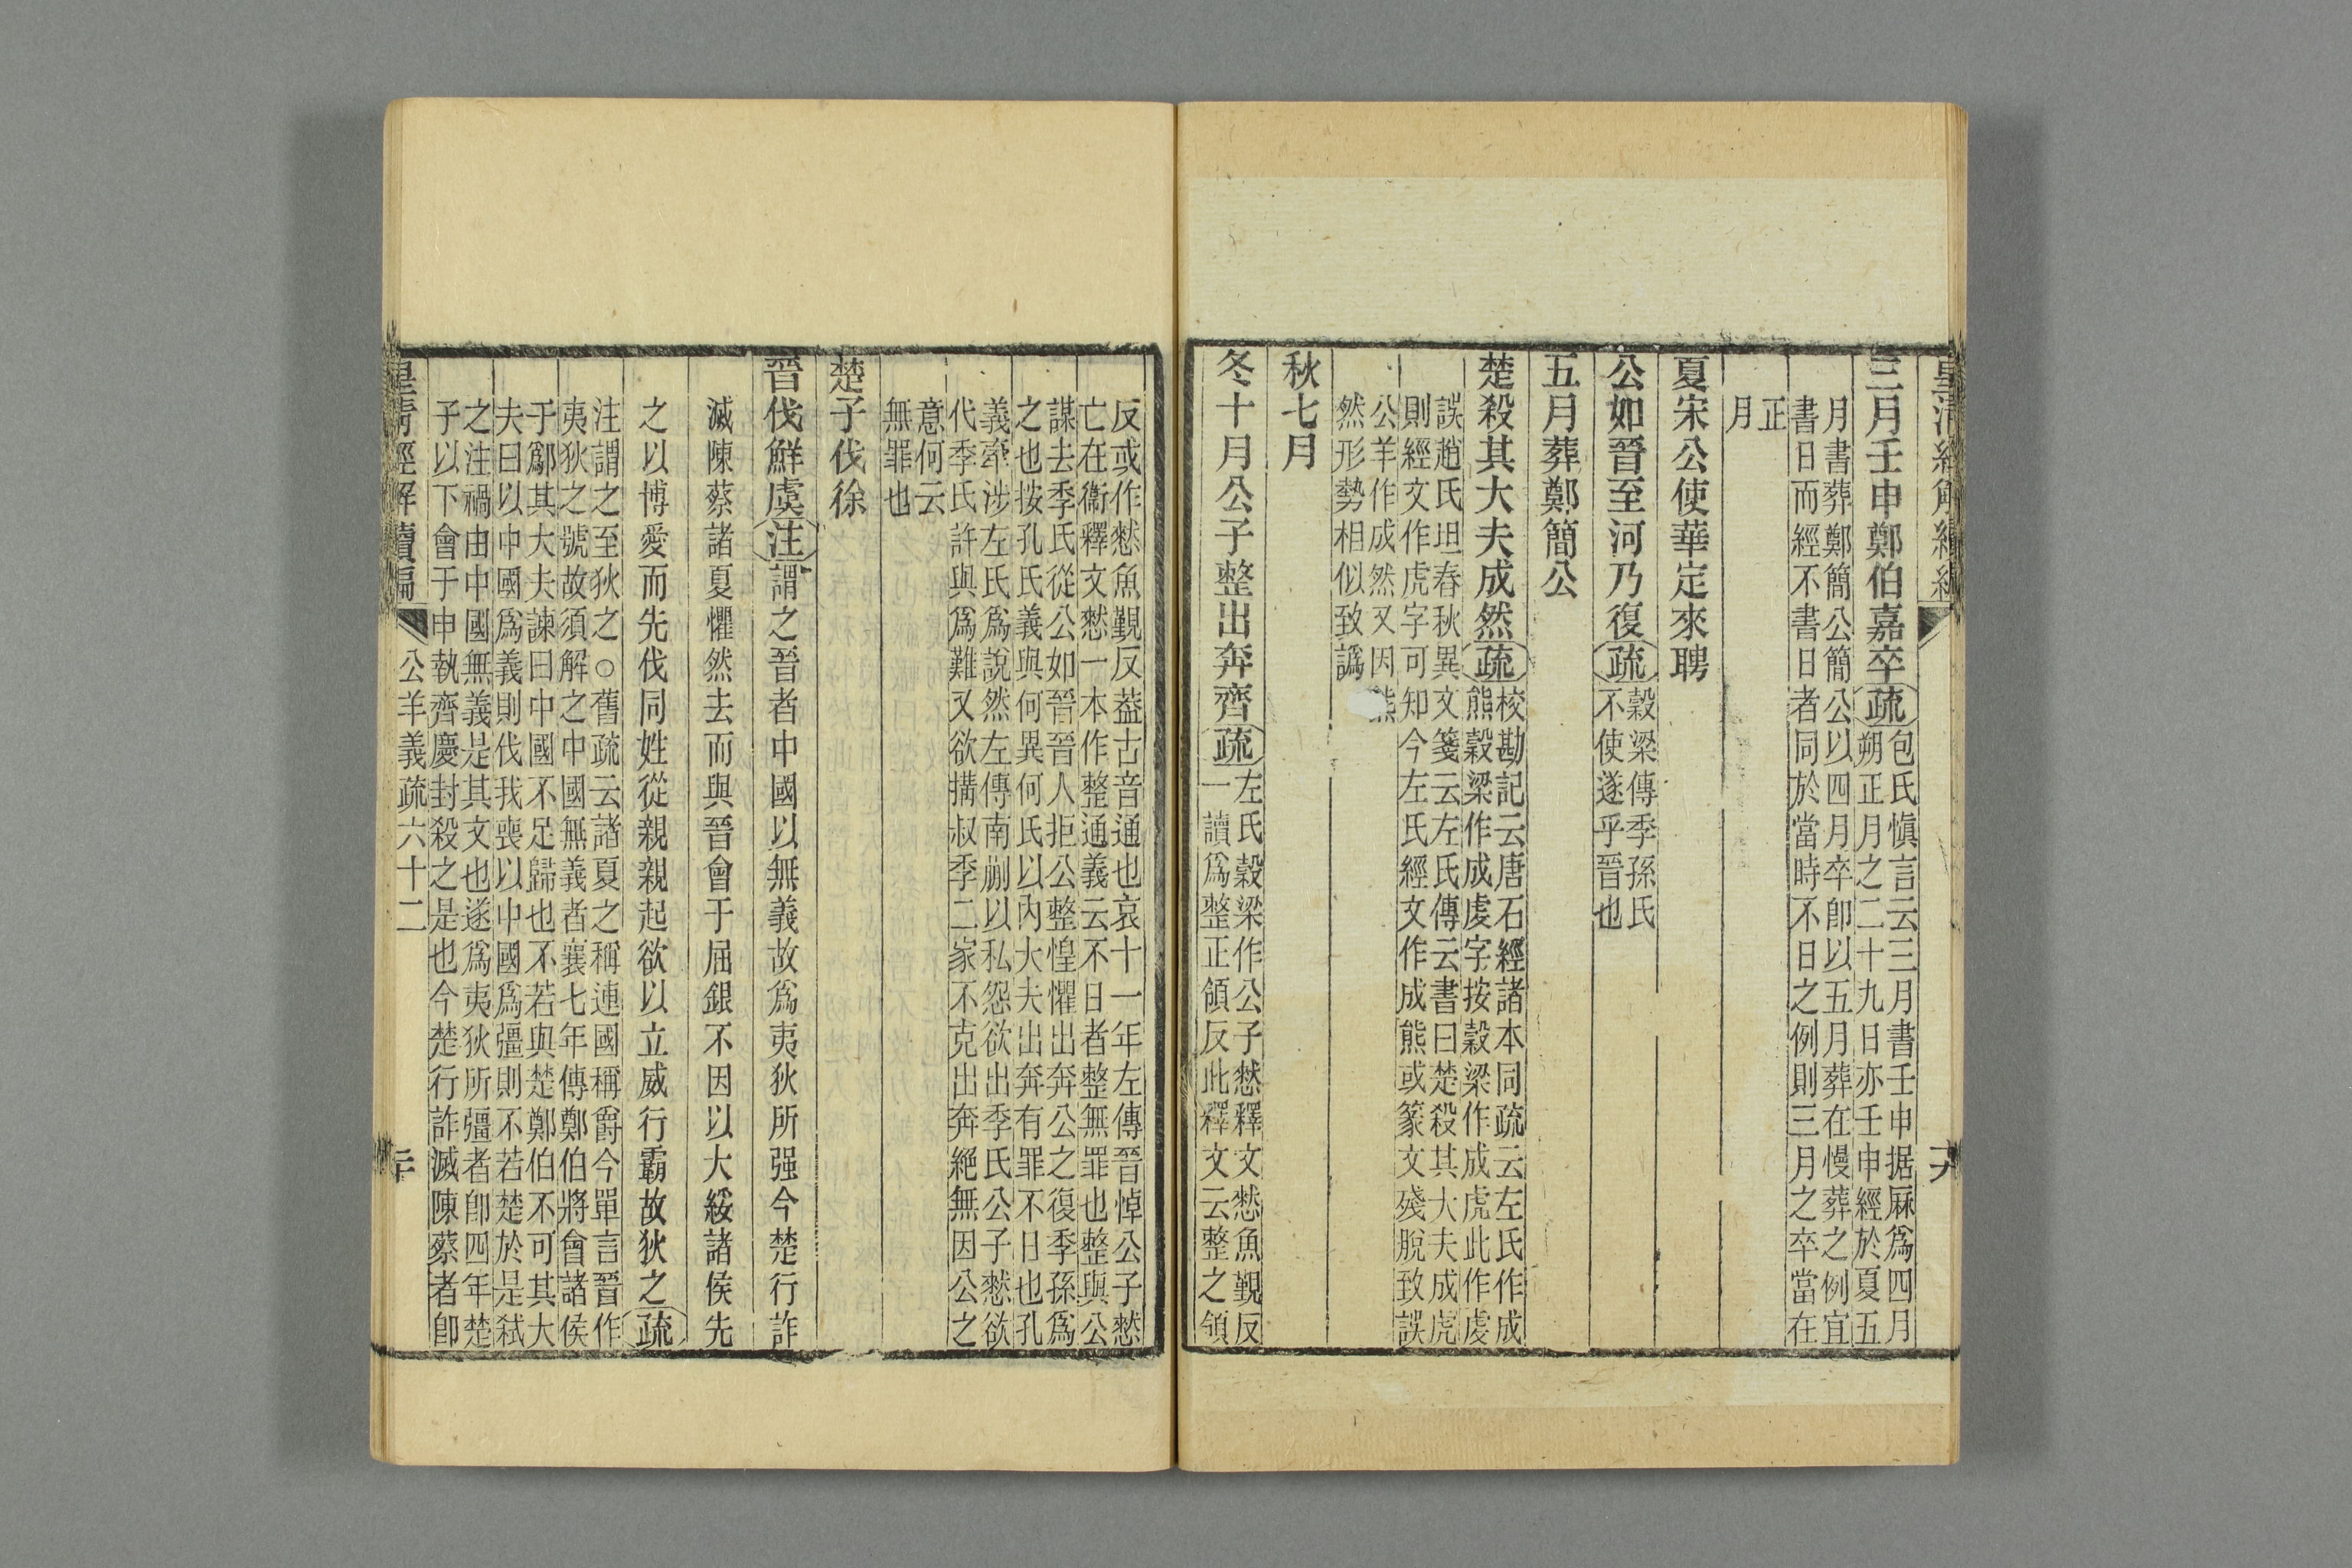 皇清經解續編
三月壬申鄭伯嘉卒疏包氏愼言云三月書壬申据厤爲四月
朔正月之二十九日亦壬申經於夏五
月書葬鄭簡公簡公以四月卒卽以五月葬在慢葬之例宜
書日而經不書日者同於當時不日之例則三月之卒當在
正
月
夏宋公使華定來聘
公如晉至河乃復疏穀梁傳季孫氏
不使遂乎晉也
五月葬鄭簡公
楚殺其大夫成然疏校勘記云唐石經諸本同疏云左氏作成
熊穀梁作成虔字按穀梁作成虎此作虔
誤趙氏坦春秋異文箋云左氏傳云書曰楚殺其大夫成虎
則經文作虎字可知今左氏經文作成熊或篆文殘脫致誤
公羊作成然又因熊
然形勢相似致譌
秋七月
冬十月公子整出奔齊疏左氏穀梁作公子憖釋文憖魚覲反
一讀爲整正領反此釋文云整之領
反或作憖魚覲反葢古音通也哀十一年左傳晉悼公子憖
亡在衞釋文憖一本作整通義云不日者整無罪也整與公
謀去季氏從公如晉晉人拒公整惶懼出奔公之復季孫爲
之也按孔氏義與何異何氏以內大夫出奔有罪不日也孔
義牽涉左氏爲說然左傳南蒯以私怨欲出季氏公子憖欲
代季氏許與爲難又欲搆叔季二家不克出奔絕無因公之
意何云
無罪也
楚子伐徐
晉伐鮮虞注謂之晉者中國以無義故爲夷狄所强今楚行詐
滅陳蔡諸夏懼然去而與晉會于屈銀不因以大綏諸侯先
之以博愛而先伐同姓從親親起欲以立威行霸故狄之疏
注謂之至狄之○舊疏云諸夏之稱連國稱爵今單言晉作
夷狄之號故須解之中國無義者襄七年傳鄭伯將會諸侯
于鄬其大夫諫曰中國不足歸也不若與楚鄭伯不可其大
夫曰以中國爲義則伐我喪以中國爲彊則不若楚於是弒
之注禍由中國無義是其文也遂爲夷狄所彊者卽四年楚
子以下會于申執齊慶封殺之是也今楚行詐滅陳蔡者卽
皇淸經解續編 公羊義疏六十二